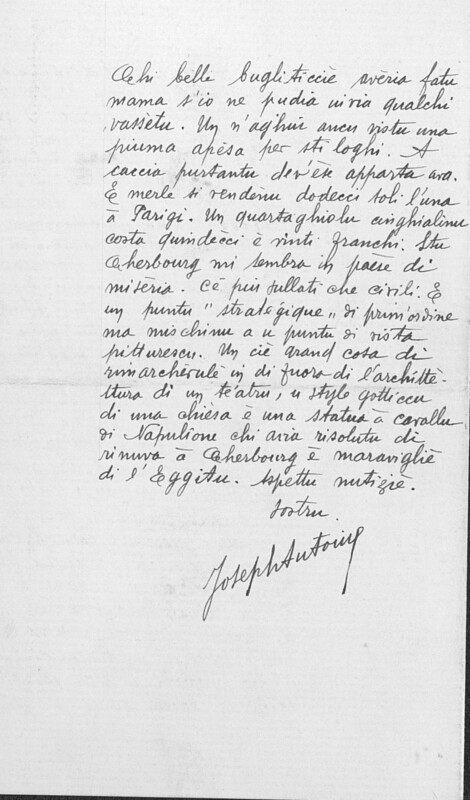 Chi belle bugliticcie averia fatu
mama s'io ne pudia invià qualchi
vassètu. Un n'aghiu ancu vistu una
piuma apèsa per sti loghi. A
caccia purtantu dev'èsse apparta ava.
È merle si rendenu dodecci soli l'una
à Parigi. Un quartaghiolu cinghialinu
costa quindècci è vinti franchi. Stu
Cherbourg mi sembra in paèse di
misèria. C'è più sullati che civili. È
un puntu "stratégique" di prim'ordine
ma mischinu a u puntu di vista
pitturescu. Un ciè grand cosa di
rimarchèvule in di fuora di l'archittè-
ttura di un tèatru, u style gotticcu
di una chièsa è una statua à cavallu
di Napulione chi avia risolutu di
rinuvà à Cherbourg è maraviglie
di l'Eggittu. Aspettu nutiziè.
Vostru
Joseph Antoine